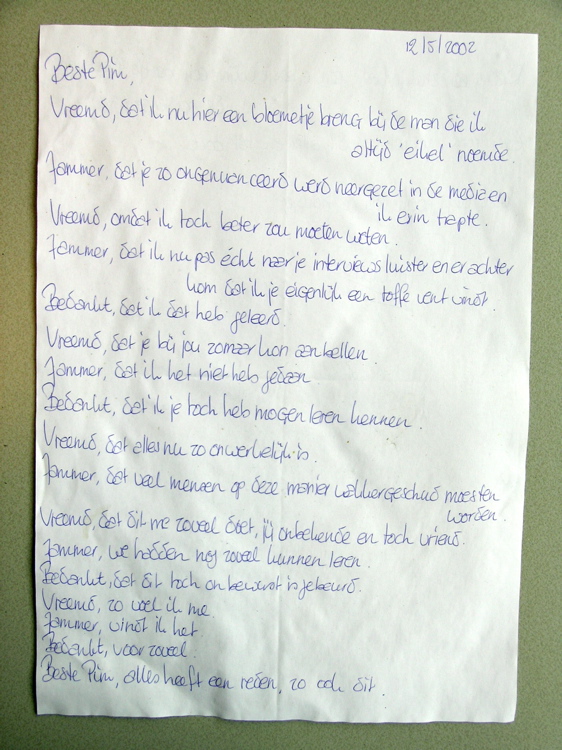 12/5/2002
Beste Pim,
Vreemd, dat ik nu hier een bloemetje breng bij de man die ik
altijd 'eikel' noemde.
Jammer, dat je zo ongenuanceerd werd neergezet in de media en
ik erin trapte.
Vreemd, omdat ik toch beter zou moeten weten.
Jammer, dat ik nu pas écht naar je interviews luister en erachter
kom dat ik je eigenlijk een toffe vent vindt.
Bedankt, dat ik dat heb geleerd.
Vreemd, dat je bij jou zomaar kon aanbellen.
Jammer, dat ik het niet heb gedaan
Bedankt, dat ik je toch heb mogen leren kennen.
Vreemd, dat alles nu zo onwerkelijk is.
Jammer, dat veel mensen op deze manier wakkergeschud moesten
worden.
Vreemd, dat dit me zoveel doet, jij onbekende en toch vriend.
Jammer, we hadden nog zoveel kunnen leren.
Bedankt, dat dit toch onbewust is gebeurd.
Vreemd, zo voel ik me.
Jammer, vindt ik het.
Bedankt, voor zoveel.
Beste Pim, alles heeft een reden, zo ook dit.